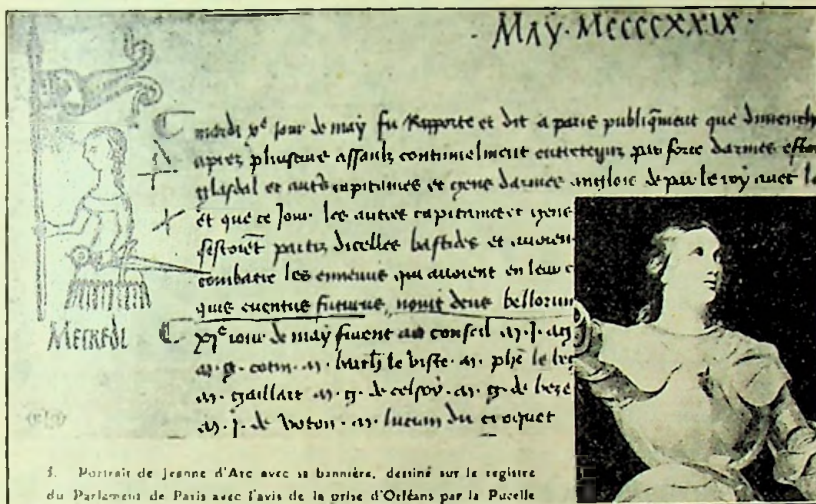 MAY · MCCCCXXIX ·
mardi xe jour de may fu Rapporte et dit a paris publiqment que dimench
apres pluseurs assaulx continuelment entretenuz par force darmes
glasdal et autres capitaines et gens darmes anglois de par le roy avec l
et que ce jour les autres capitaines et gens
partiz dicelles bastides et avoien
combatre les ennemis qui avoient en leur c
quis eventus futurus, novit deus bellorum
MECREDI
xje jour de may furent au conseil m. j.
m. g. cotin. m. le viste. m. phe le
m. gaillart m. g. de celsoy. m. g. de
m. j. de m. lucian du croquet
3. Portrait de Jeanne d'Arc avec sa bannière, dessiné sur le registre
du Parlement de Paris avec l'avis de la prise d'Orléans par la Pucelle